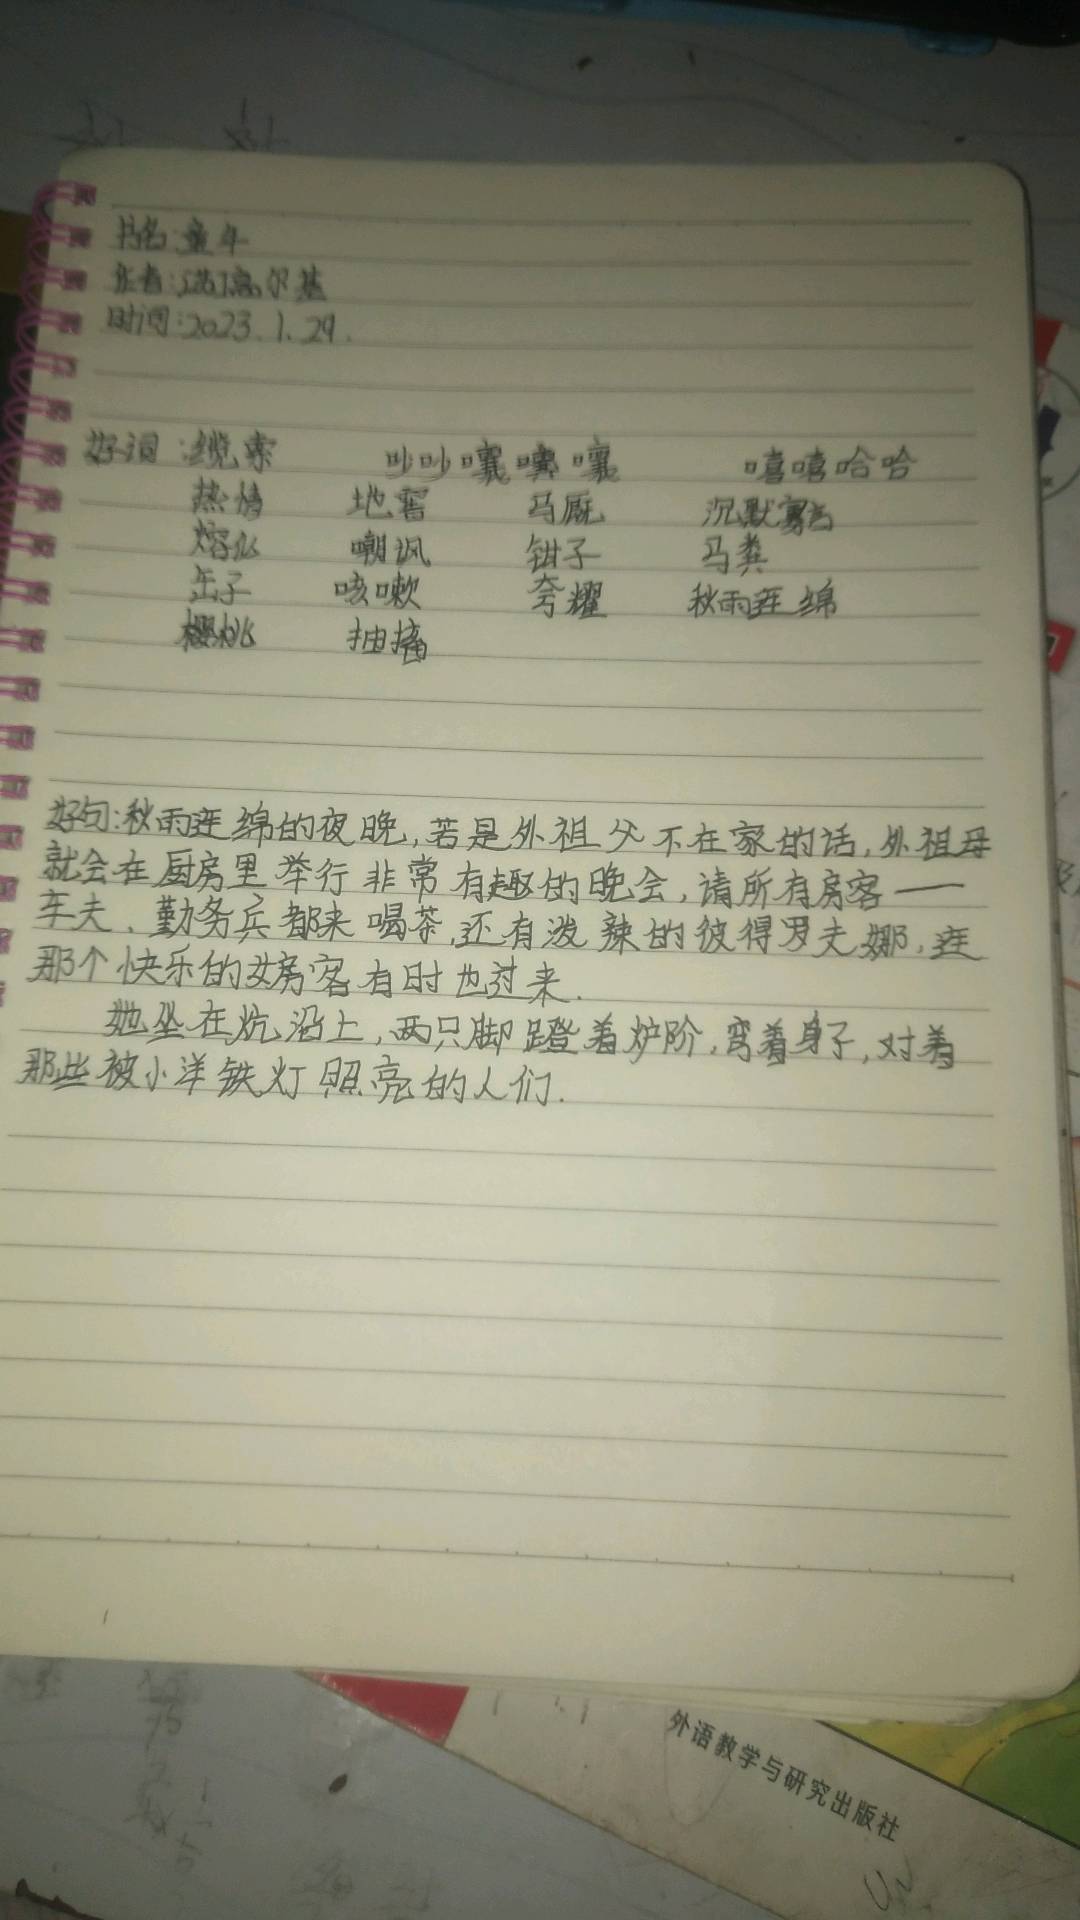 书名:童年
作者:[苏]高尔基
时间:2023.1.29.
好词:缆索 吵吵嚷嚷嚷 嘻嘻哈哈
热情 地窖 马厩 沉默寡言
熔化 嘲讽 钳子 马粪
缶子 咳嗽 夸耀 秋雨连绵
樱桃 抽搐
好句:秋雨连绵的夜晚,若是外祖父不在家的话,外祖母
就会在厨房里举行非常有趣的晚会,请所有房客——
车夫、勤务兵都来喝茶,还有泼辣的彼得罗夫娜,连
那个快乐的女房客有时也过来.
她坐在炕沿上,两只脚蹬着炉阶,弯着身子,对着
那些被小洋铁灯照亮的人们.
外语教学与研究出版社